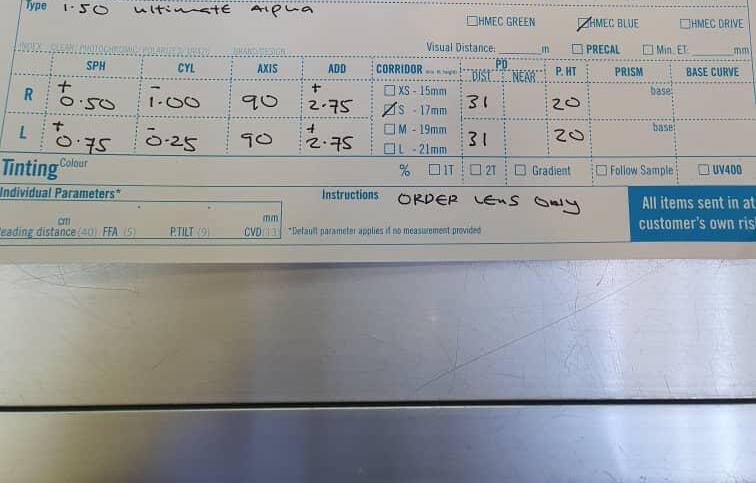 Type 1.50 ultimate Alpha
HMEC GREEN HMEC BLUE HMEC DRIVE
INDEX CLEAR/PHOTOCHROMIC/POLARIZED/ BRAND/DESIGN Visual Distance: m PRECAL Min. ET: mm
SPH CYL AXIS ADD CORRIDOR PD DIST NEAR P. HT PRISM BASE CURVE
R +0.50 -1.00 90 +2.75 XS - 15mm S - 17mm 31 20 base
L +0.75 -0.25 90 +2.75 M - 19mm L - 21mm 31 20 base
Tinting Colour % 1T 2T Gradient Follow Sample UV400
Individual Parameters* Instructions ORDER LENS Only
cm mm
eading distance (40) FFA (5) P.TILT (9) CVD(13) *Default parameter applies if no measurement provided
All items sent in at
customer's own ris